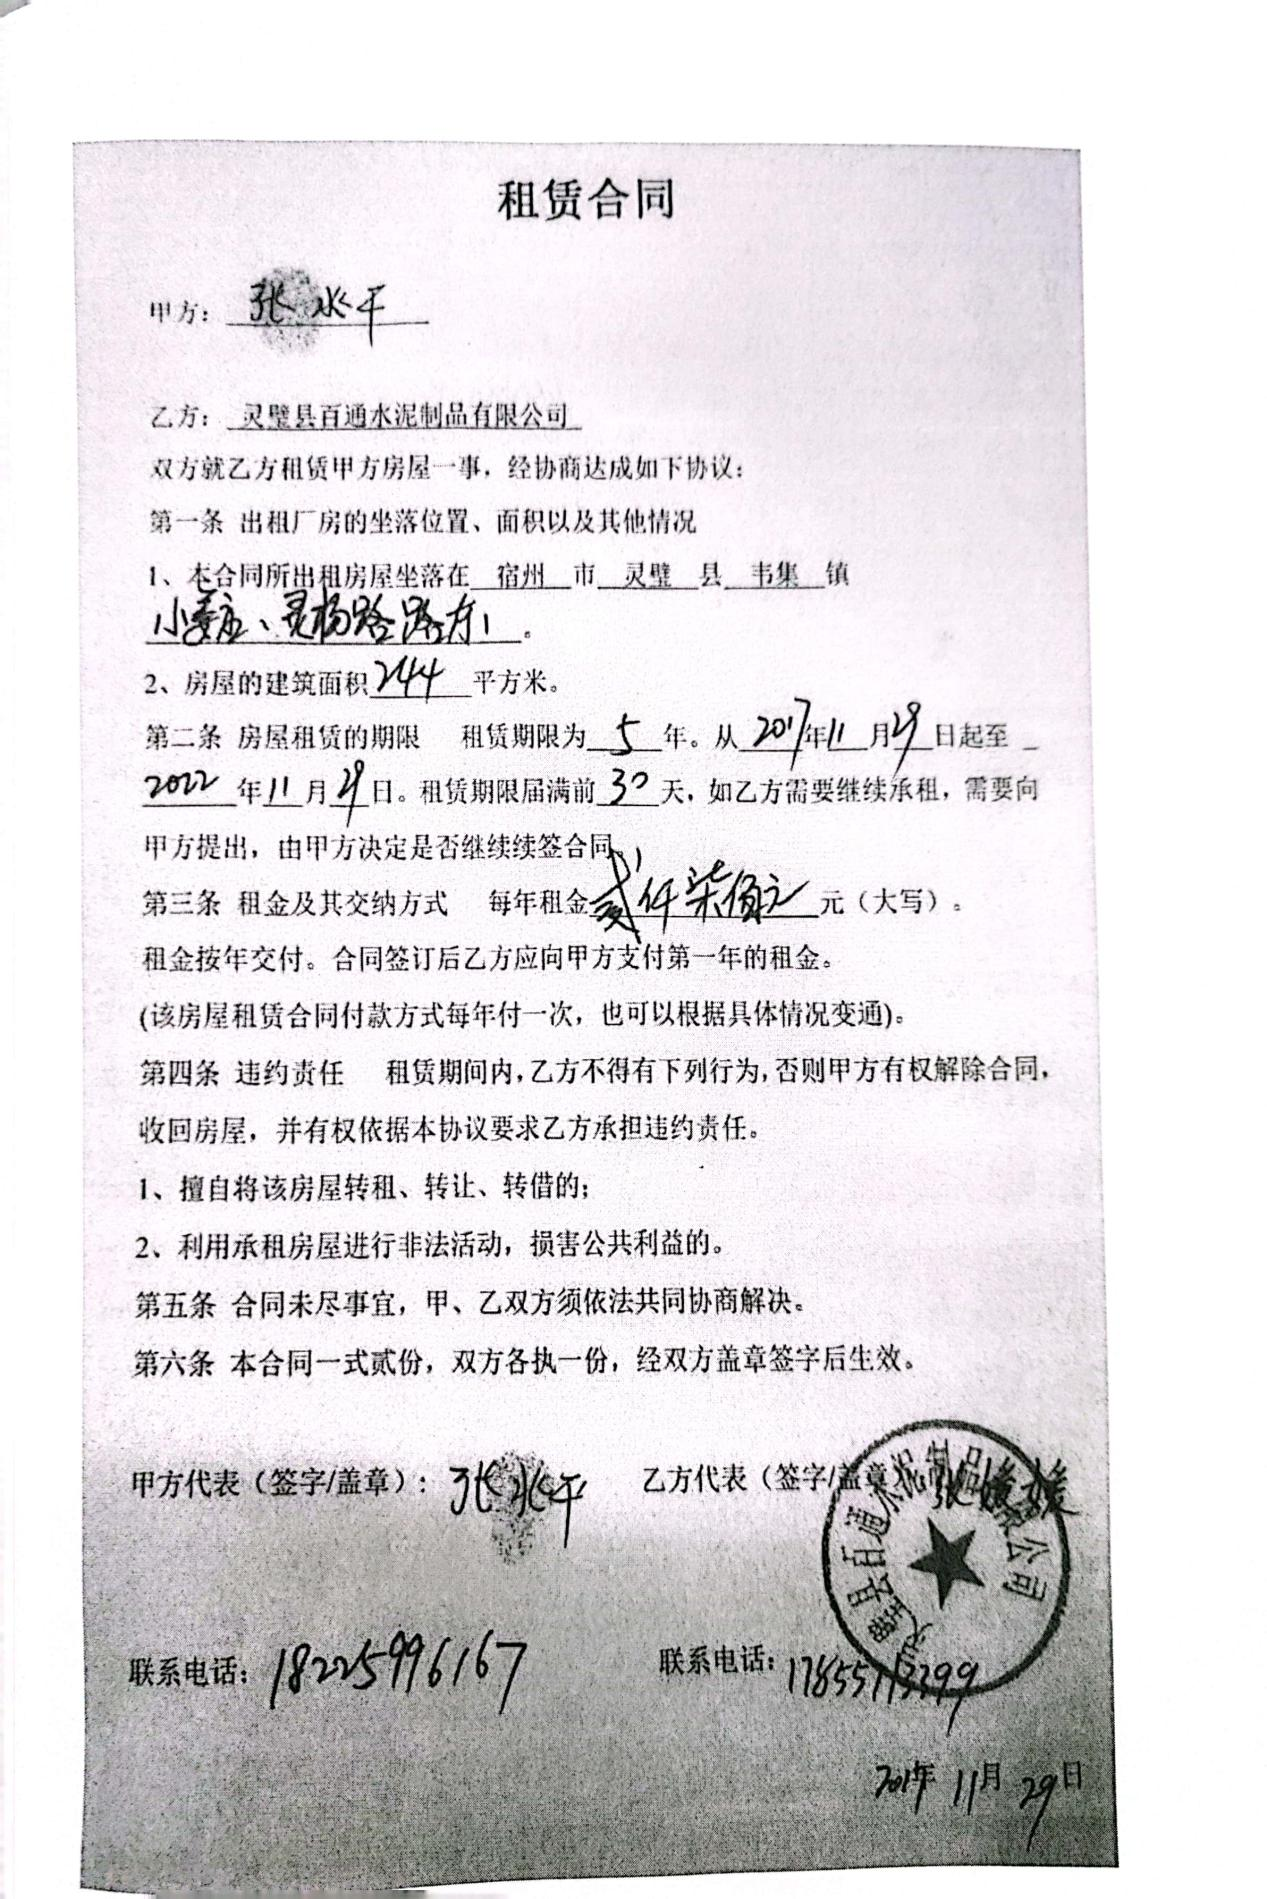 租赁合同
甲方：张水平
乙方：灵璧县百通水泥制品有限公司
双方就乙方租赁甲方房屋一事，经协商达成如下协议：
第一条 出租厂房的坐落位置、面积以及其他情况
1、本合同所出租房屋坐落在 宿州 市 灵璧 县 韦集 镇
小 庄、灵杨路路东。
2、房屋的建筑面积 244 平方米。
第二条 房屋租赁的期限 租赁期限为 5 年。从 2017 年 11 月 29 日起至
2022 年 11 月 29 日。租赁期限届满前 30 天，如乙方需要继续承租，需要向
甲方提出，由甲方决定是否继续续签合同。
第三条 租金及其交纳方式 每年租金 贰仟柒佰元 元（大写）。
租金按年交付。合同签订后乙方应向甲方支付第一年的租金。
(该房屋租赁合同付款方式每年付一次，也可以根据具体情况变通)。
第四条 违约责任 租赁期间内，乙方不得有下列行为，否则甲方有权解除合同，
收回房屋，并有权依据本协议要求乙方承担违约责任。
1、擅自将该房屋转租、转让、转借的；
2、利用承租房屋进行非法活动，损害公共利益的。
第五条 合同未尽事宜，甲、乙双方须依法共同协商解决。
第六条 本合同一式贰份，双方各执一份，经双方盖章签字后生效。
甲方代表（签字/盖章）：张水平 乙方代表（签字/盖章 张媛媛
灵璧县百通水泥制品有限公司
联系电话：18225996167 联系电话：
2017年 11月 29日